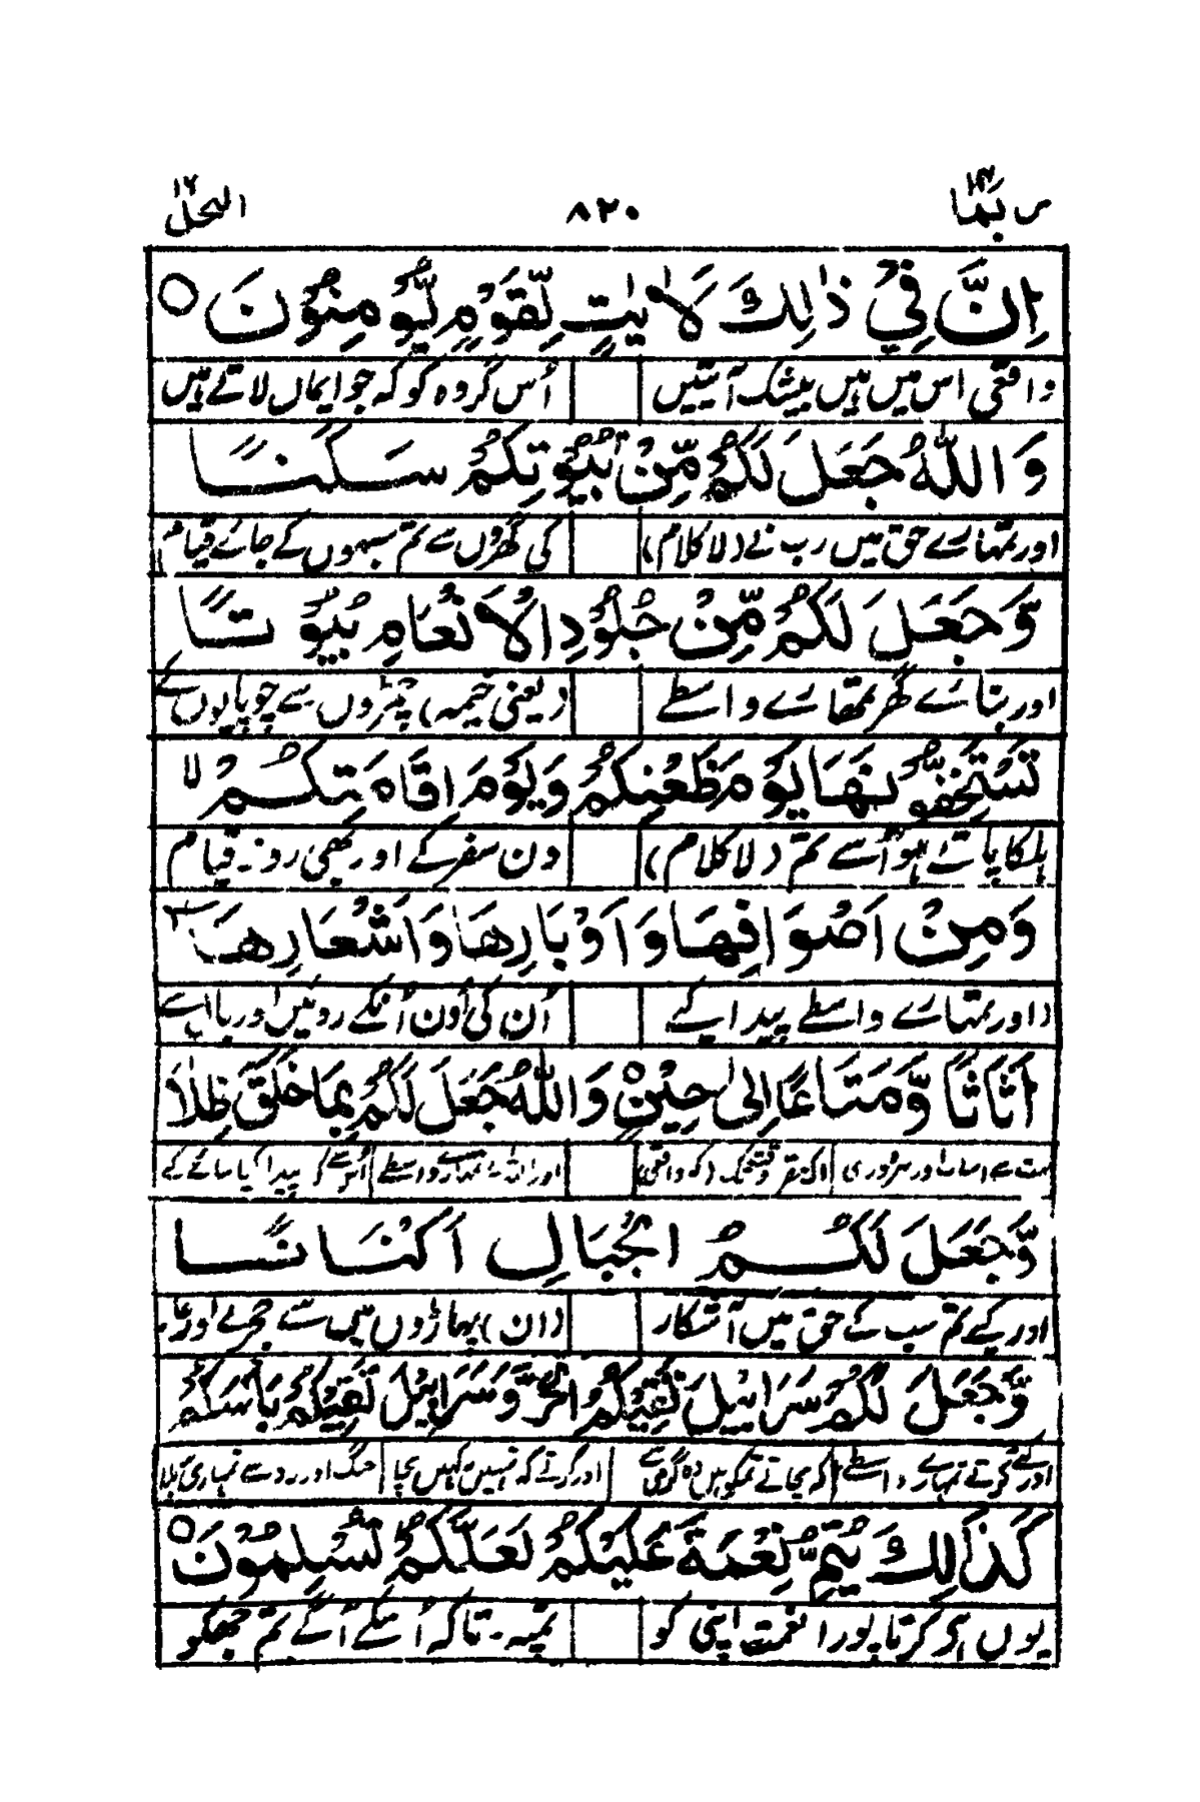 ربما ۱۴ ۸۲۰ النحل ۱۶
اِنَّ فِيْ ذٰلِكَ لَاٰيٰتٍ لِّقَوْمٍ يُّؤْمِنُوْنَ ○
واقعی اس میں ہیں بیشک آیتیں اُس گروہ کو کہ جو ایماں لاتے ہیں
وَاللّٰهُ جَعَلَ لَكُمْ مِّنْۢ بُيُوْتِكُمْ سَكَنًا
اور تمہارے حق میں رب نے (لا کلام) کی گھروں سے تم سبھوں کے جائے قیام
وَّجَعَلَ لَكُمْ مِّنْ جُلُوْدِ الْاَنْعَامِ بُيُوْتًا
اور بنائے گھر تمھارے واسطے (یعنی خیمہ) چمڑوں سے چوپایوں کے
تَسْتَخِفُّوْنَهَا يَوْمَ ظَعْنِكُمْ وَيَوْمَ اِقَامَتِكُمْ لا
ہلکا پاتے ہو اُسے تم (لا کلام) دن سفر کے اور بھی روز قیام
وَمِنْ اَصْوَافِهَا وَاَوْبَارِهَا وَاَشْعَارِهَا
(اور تمہارے واسطے پیدا کیے اُن کی اُون اُنکے روئیں اور بال سے
اَثَاثًا وَّمَتَاعًا اِلٰى حِيْنٍ ○ وَاللّٰهُ جَعَلَ لَكُمْ مِّمَّا خَلَقَ ظِلٰلًا
اور اللہ نے تمہارے واسطے پیدا کیا سائے کے
وَّجَعَلَ لَكُمْ مِّنَ الْجِبَالِ اَكْنَانًا
اور کیے تم سب کے حق میں آشکار (ان) پہاڑوں میں سے حجرے اور غار
وَّجَعَلَ لَكُمْ سَرَابِيْلَ تَقِيْكُمُ الْحَرَّ وَسَرَابِيْلَ تَقِيْكُمْ بَاْسَكُمْ
اور کیے کرتے تمہارے واسطے کہ بچاتے تمکو ہیں وہ گرمی سے اور کرتے کہ تمہیں کہیں بچا جنگ اور
كَذٰلِكَ يُتِمُّ نِعْمَتَهٗ عَلَيْكُمْ لَعَلَّكُمْ تُسْلِمُوْنَ ○
یوں ہی کرتا پورا نعمت اپنی کو تمپہ۔ تاکہ اُسکے آگے تم جھکو